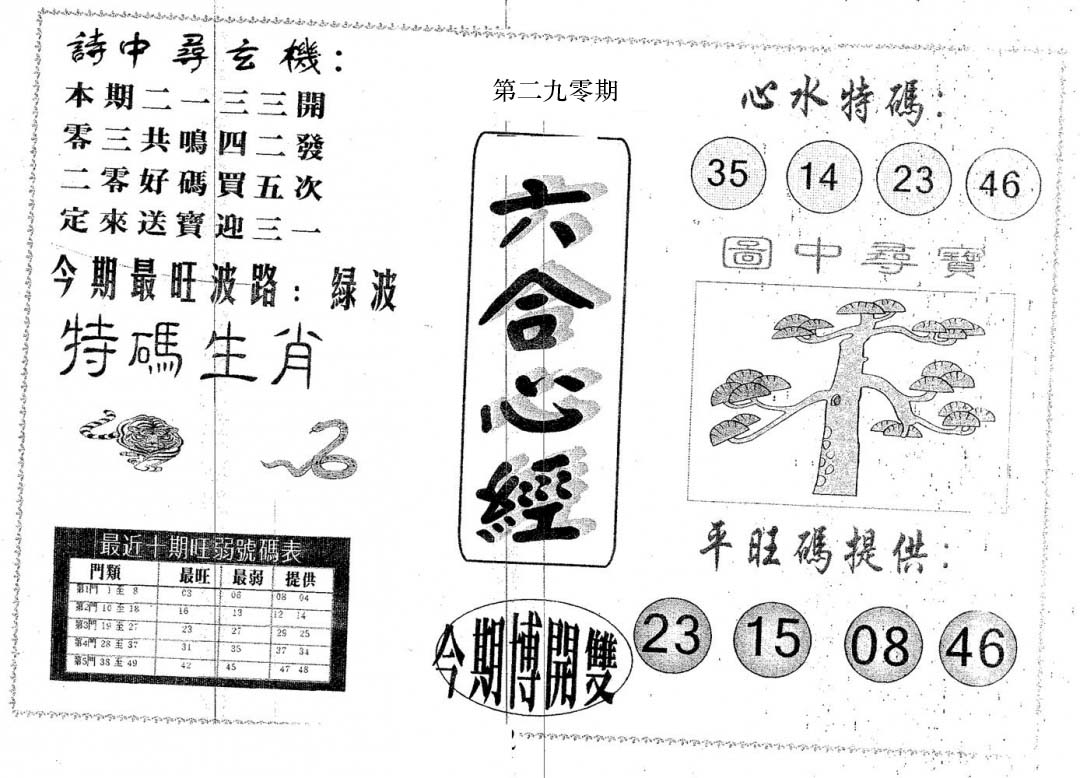 詩中尋玄機：
本期二一三三開
零三共鳴四二發
二零好碼買五次
定來送寶迎三一
今期最旺波路：綠波
特碼生肖
最近十期旺弱號碼表
門類 最旺 最弱 提供
第1門 1 至 8 03 06 08 04
第2門 10 至 18 16 13 12 14
第3門 19 至 27 23 27 26 25
第4門 28 至 37 31 35 37 34
第5門 38 至 49 42 45 47 48
第二九零期
六合心經
今期博開雙
心水特碼：
35 14 23 46
圖中尋寶
平旺碼提供：
23 15 08 46